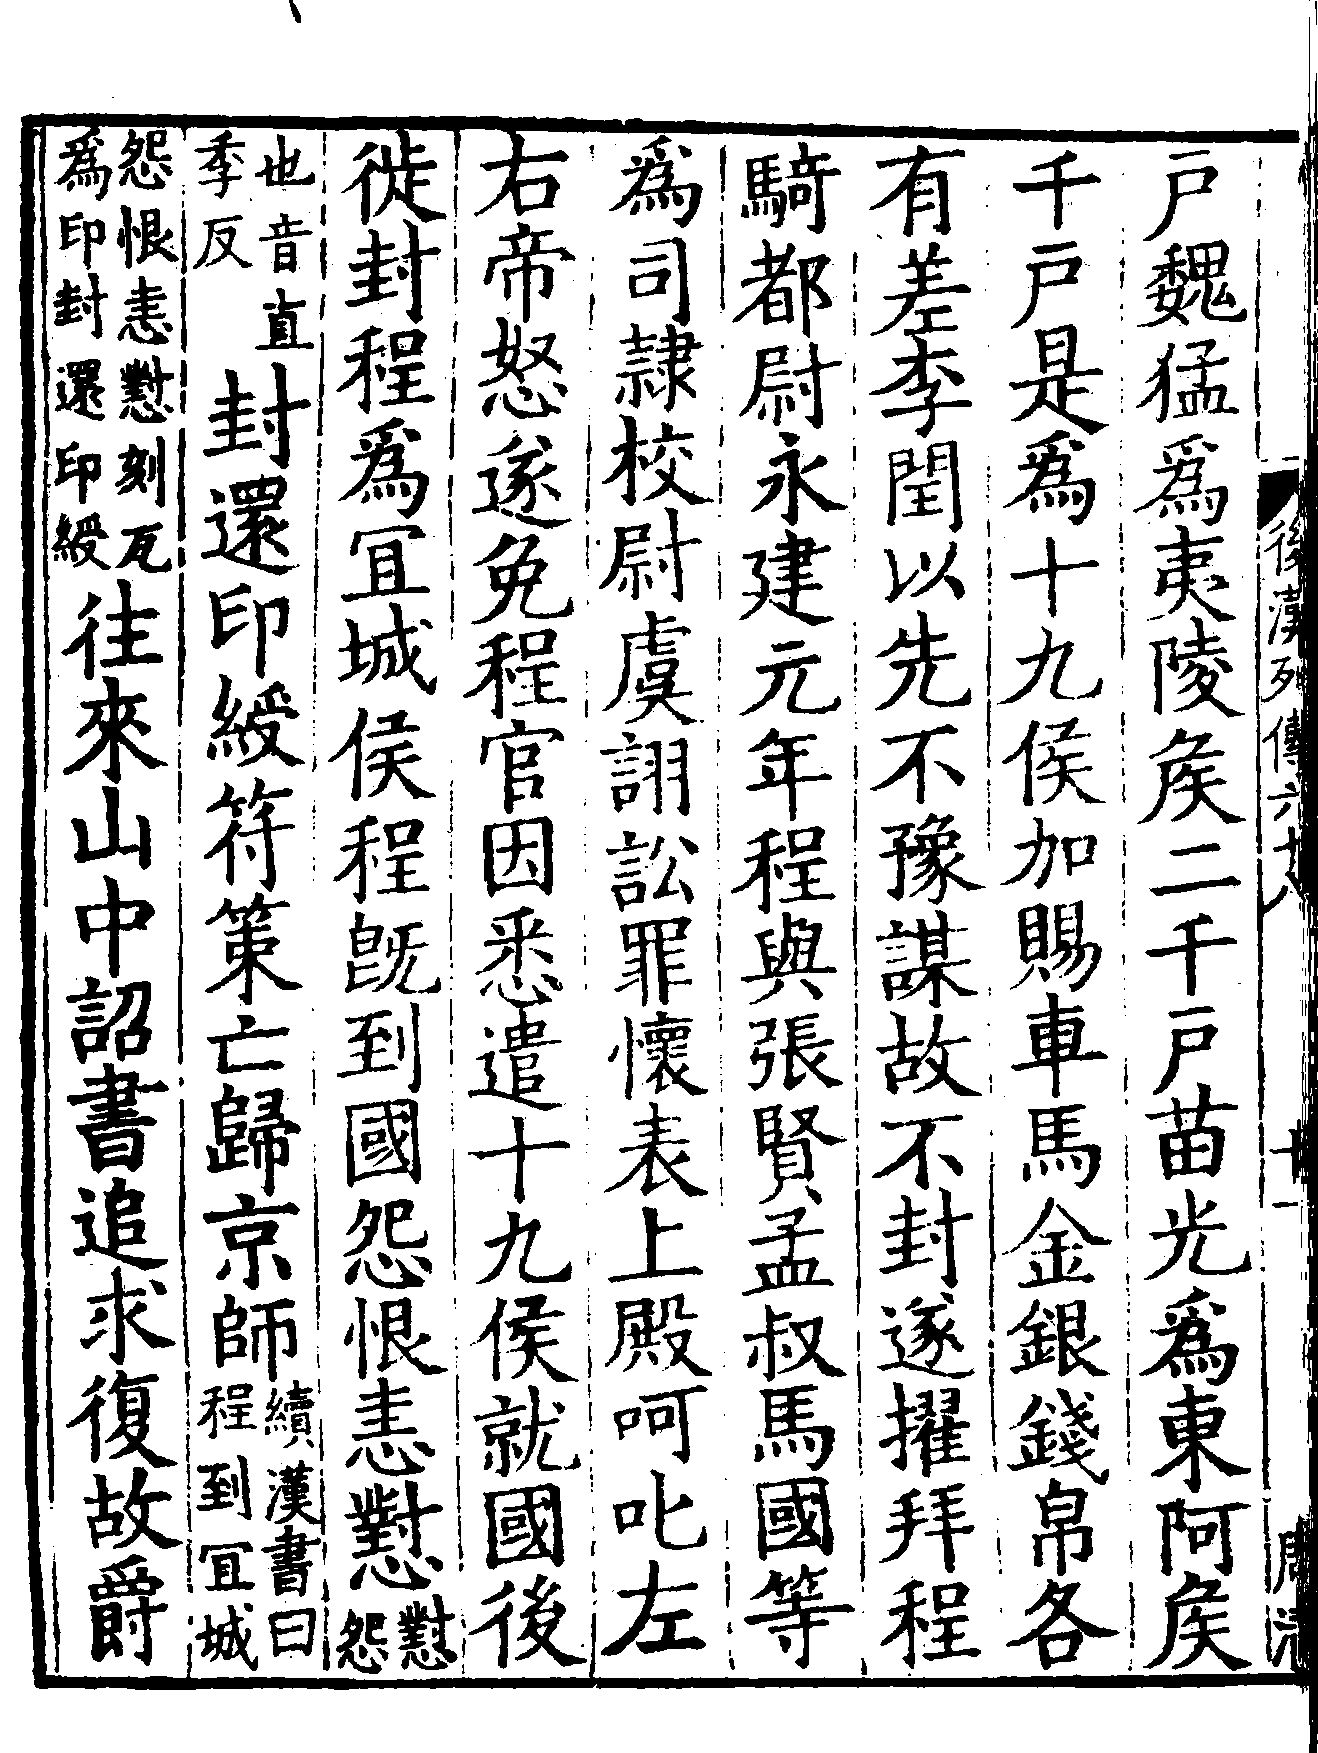 後漢列傳六十八
十一
戶魏猛爲夷陵矦二千戶苗光爲東阿矦
千戶是爲十九侯加賜車馬金銀錢帛各
有差李閏以先不豫謀故不封遂擢拜程
騎都尉永建元年程與張賢孟叔馬國等
爲司隷校尉虞詡訟罪懷表上殿呵叱左
右帝怒遂免程官因悉遣十九侯就國後
徙封程爲冝城侯程旣到國怨恨恚懟懟怨
也音直季反封還印綬符策亡歸京師續漢書曰程到冝城
怨恨恚懟刻瓦爲印封還印綬往來山中詔書追求復故爵